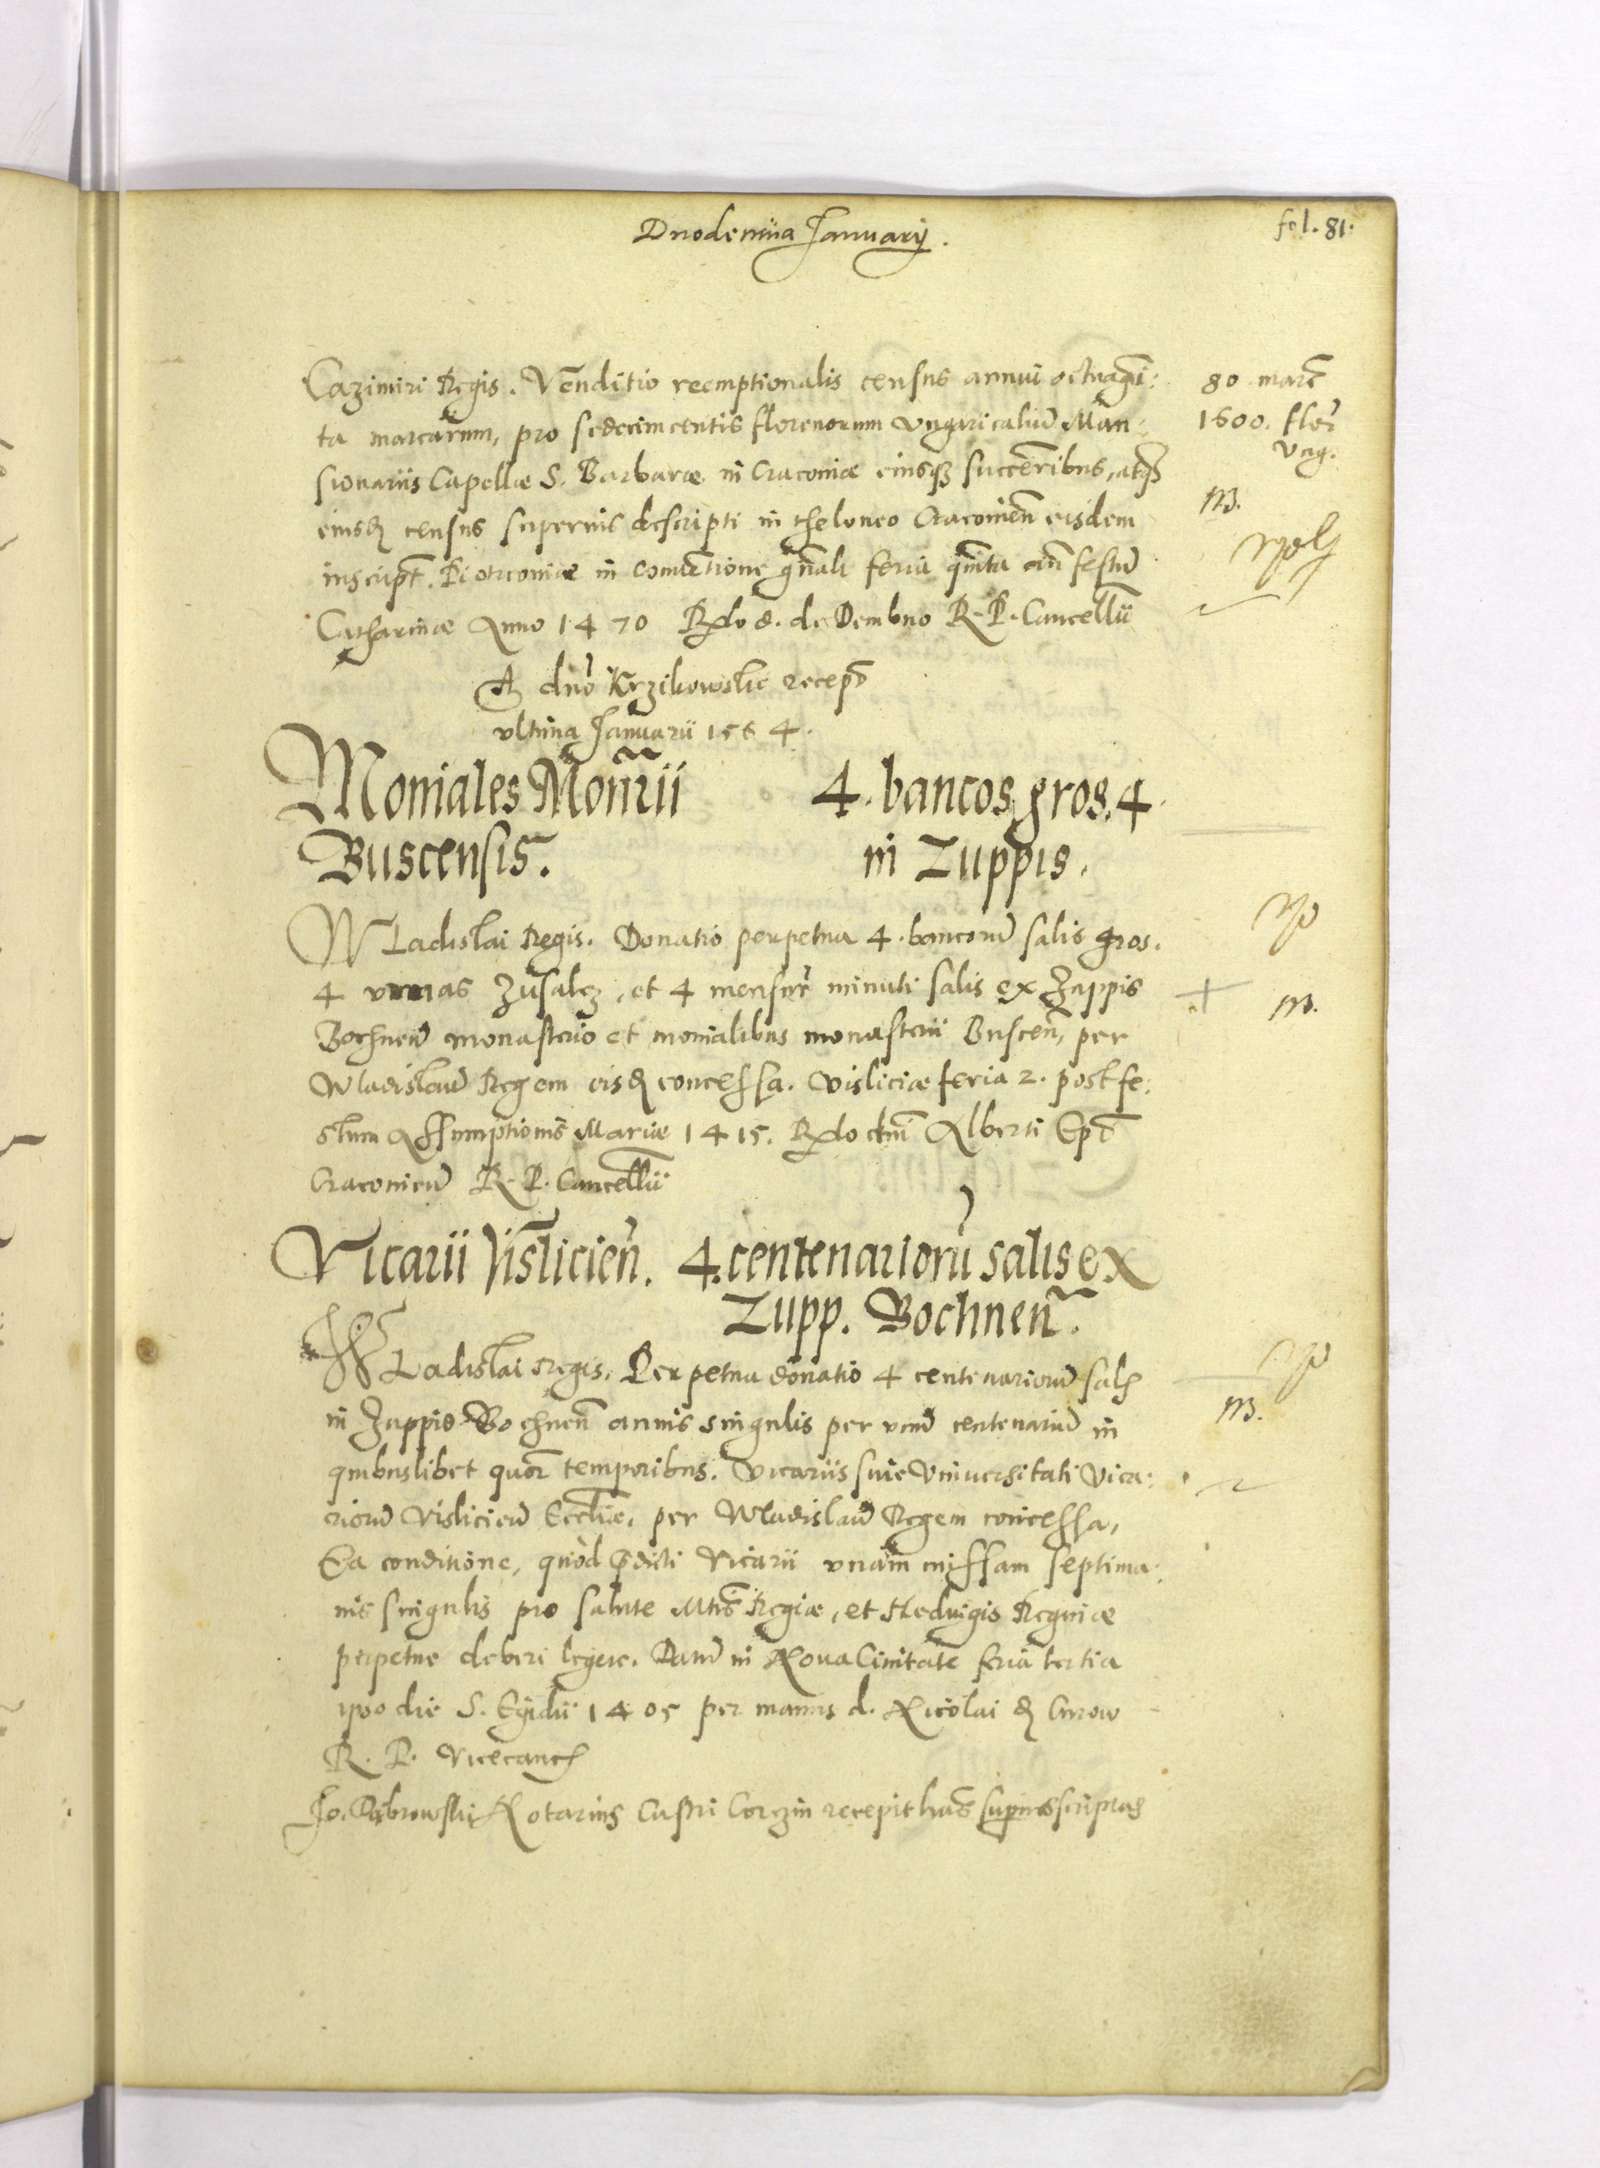 Duodecima Januarij.
fol. 81.
Cazimiri Regis. Venditio reemptionalis census annui octuagin:
ta marcarum, pro sedecimcentis florenorum vngaricaliu Man:
sionariis Capellae S. Barbarae in Cracouia eiusq; successoribus, atq;
eiusd census superius descripti in theloneo Cracouien eisdem
inscript. Piotrcouiae in conuentione gnali feria quinta an festu
Catharinae Anno 1470 Rdo S. de Dembno R. P. Cancellu
80 marc
1600. flor
Vng.
m.
A dno Krzikowskie recept
vltima Januarii 1564.
Moniales Monrii 4. bancos gros. 4
Buscensis. in Zuppis.
Wladislai Regis. Donatio perpetua 4. bancoru salis gros.
4 vrnas Zusalcz, et 4 mensur minuti salis ex Zuppis
Bochnen monasterio et monialibus monasterii Buscen, per
Wladislau Regem eisd concessa. Visliciae feria 2. post fe:
stum Assumptionis Mariae 1415. Rdo dni Alberti Epi
Cracouien R. P. Cancellii
m.
Vicarii Vislicien. 4. centenarioru salis ex
Zupp. Bochnen.
Wladislai Regis. Perpetua donatio 4 centenarioru salis
in Zuppis Bochnen annis singulis per vnu centenariu in
quibuslibet quor temporibus. Vicariis siue Vniuersitati Vica:
rioru Vislicien Eccliae, per Wladislau Regem concessa,
Ea conditione, quòd pdicti Vicarii vnam missam septima:
nis singulis pro salute Mtis Regiae, et Heduigis Reginae
perpetue deberi legere. Datu in Noua Ciuitate feria tertia
ipso die S. Egidii 1405 per manus d. Nicolai d Curow
R. P. Vicecanc
m.
Jo. Dąbrowski Notarius Castri Corczin recepit has superius scriptas